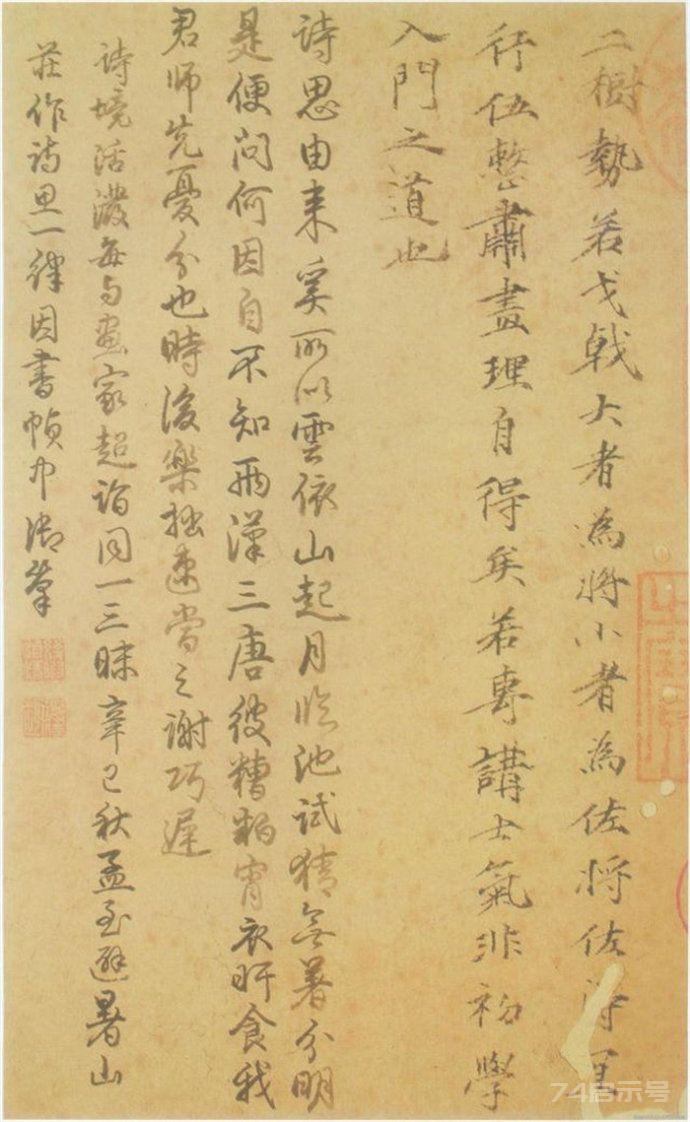 二樹勢若戈戟大者為將小者為佐將佐得
行伍整肅畫理自得矣若專講士氣非初學
入門之道也
詩思由来奚所似雲依山起月臨池試猜無著分明
是便問何因自不知兩漢三唐彼糟粕宵衣旰食我
君師先憂分也時後樂拙速當之謝巧遲
詩境活潑每与畫家超詣同一三昧辛巳秋孟至避暑山
莊作詩思一律因書幀中御筆
74启示号